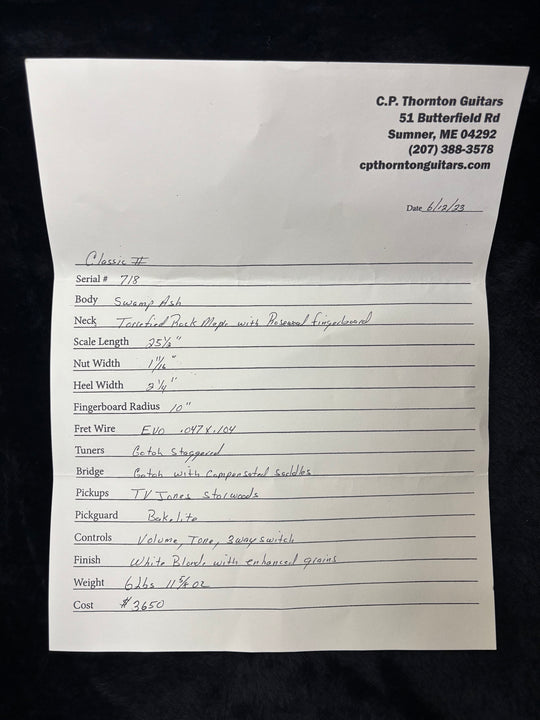 C.P. Thornton Guitars
51 Butterfield Rd
Sumner, ME 04292
(207) 388-3578
cpthorntonguitars.com
Date 6/12/23
Classic II
Serial # 718
Body Swamp Ash
Neck Torrefied Rock Maple with Rosewood fingerboard
Scale Length 25 1/2"
Nut Width 1 11/16"
Heel Width 2 1/4"
Fingerboard Radius 10"
Fret Wire EVO .047 X .104
Tuners Gotoh Staggered
Bridge Gotoh with Compensated Saddles
Pickups TV Jones Starwoods
Pickguard Bakelite
Controls Volume, Tone, 3way switch
Finish White Blonde with enhanced grains
Weight 6 Lbs 11 oz
Cost $3650